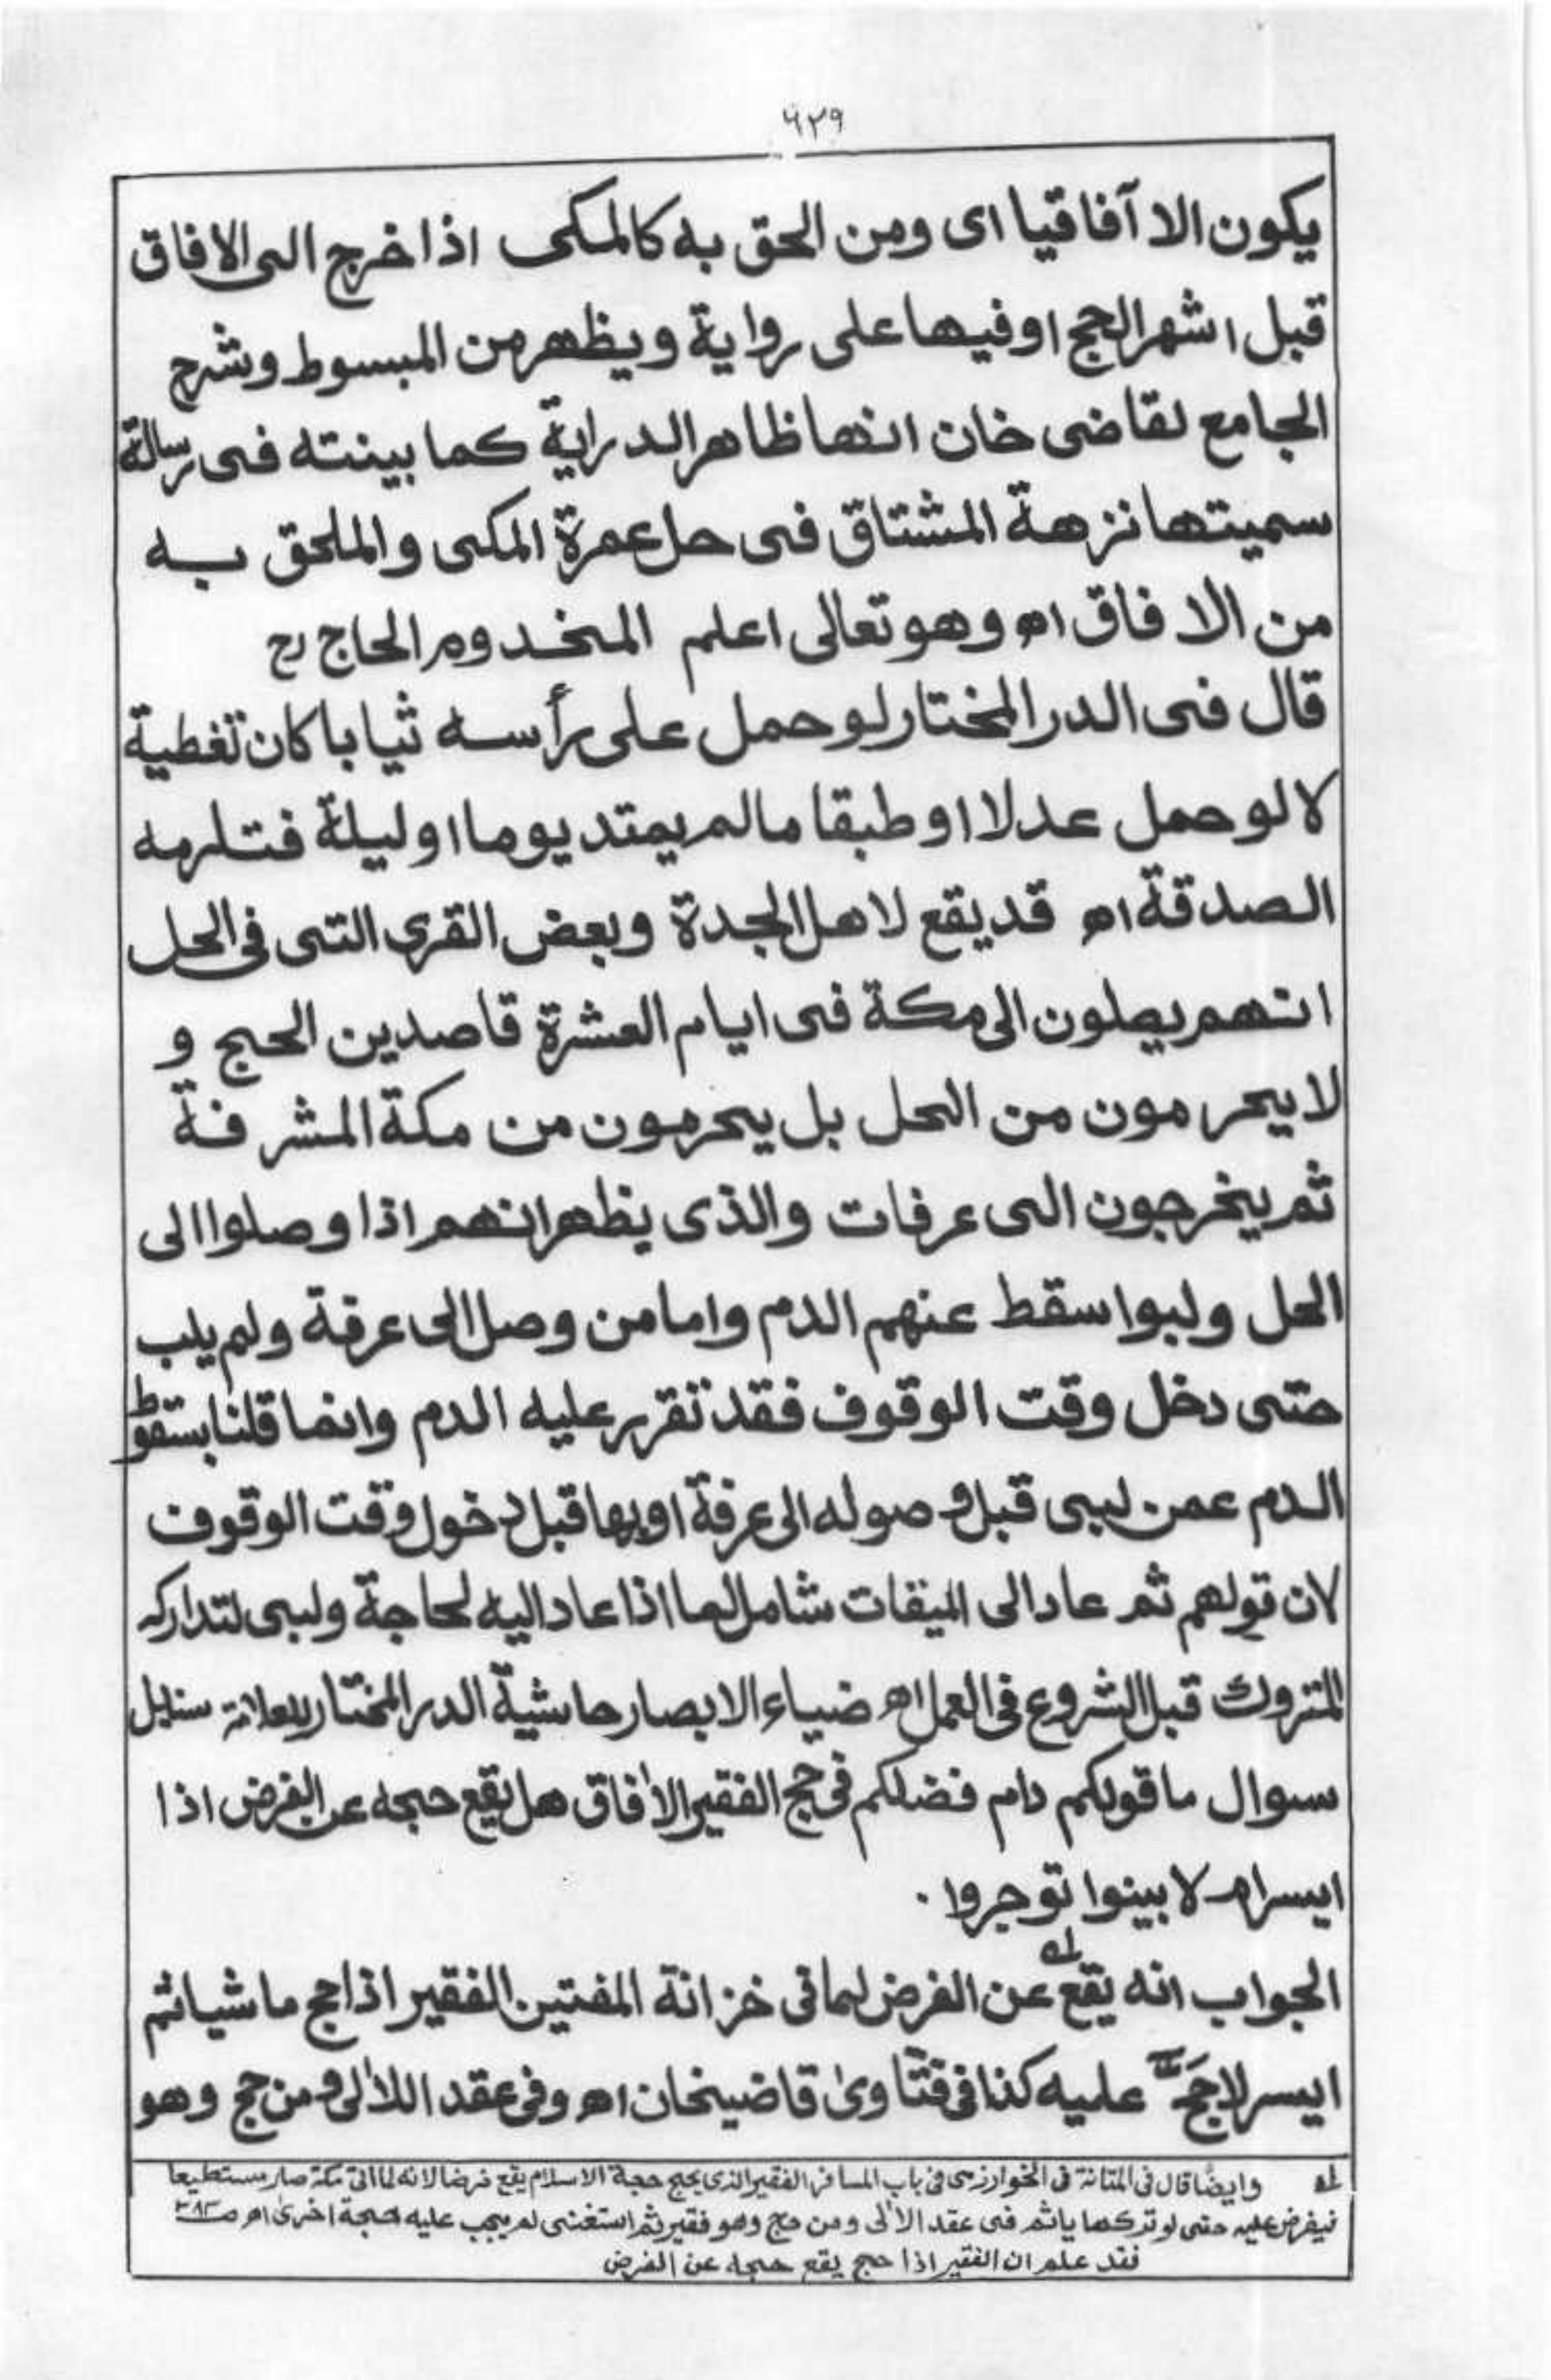 ٦٢٩
يكون الا آفاقيا اى ومن الحق به كالمكى اذا خرج الى الافاق
قبل اشهر الحج اوفيها على رواية ويظهر من المبسوط وشرح
الجامع لقاضى خان انها ظاهر الدراية كما بينته فى رسالة
سميتها نزهة المشتاق فى حل عمرة المكى والملحق به
من الافاق اھ وهو تعالى اعلم المخدوم الحاج رح
قال فى الدر المختار لو حمل على رأسه ثيابا كان تغطية
لا لو حمل عدلا او طبقا مالم يمتد يوما او ليلة فتلرمه
الصدقة اھ قد يقع لاهل الجدة وبعض القرى التى فى الحل
انهم يصلون الى مكة فى ايام العشرة قاصدين الحج و
لا يحرمون من الحل بل يحرمون من مكة المشرفة
ثم يخرجون الى عرفات والذى يظهر انهم اذا وصلوا الى
الحل ولبوا سقط عنهم الدم واما من وصل الى عرفة ولم يلب
حتى دخل وقت الوقوف فقد تقرر عليه الدم وانما قلنا بسقوط
الدم عمن لبى قبل وصوله الى عرفة او بها قبل دخول وقت الوقوف
لان قولهم ثم عاد الى الميقات شامل لما اذا عاد اليه لحاجة ولبى لتدارك
المتروك قبل الشروع فى العمل اھ ضياء الابصار حاشية الدر المختار للعلامة سنابل
سوال ما قولكم دام فضلكم فى حج الفقير الافاق هل يقع حجه عن الفرض اذا
ايسر ام لا بينوا توجروا ·
الجواب انه يقع له عن الفرض لما فى خزانة المفتين الفقير اذا حج ماشيا ثم
ايسر لا حَجَّ عليه كذا فى فتاوىٰ قاضيخان اھ وفى عقد اللالى ومن حج وهو
له وايضًا قال فى المتانة فى الخوارزمى فى باب المسافر الفقير الذى يحج حجة الاسلام يقع فرضا لانه لما اتى مكة صار مستطيعا
فيفرض عليه حتى لو تركها ياثم فى عقد الالى ومن حج وهو فقير ثم استغنى لم يجب عليه حجة اخرى اھ
فقد علم ان الفقير اذا حج يقع حجه عن الفرض